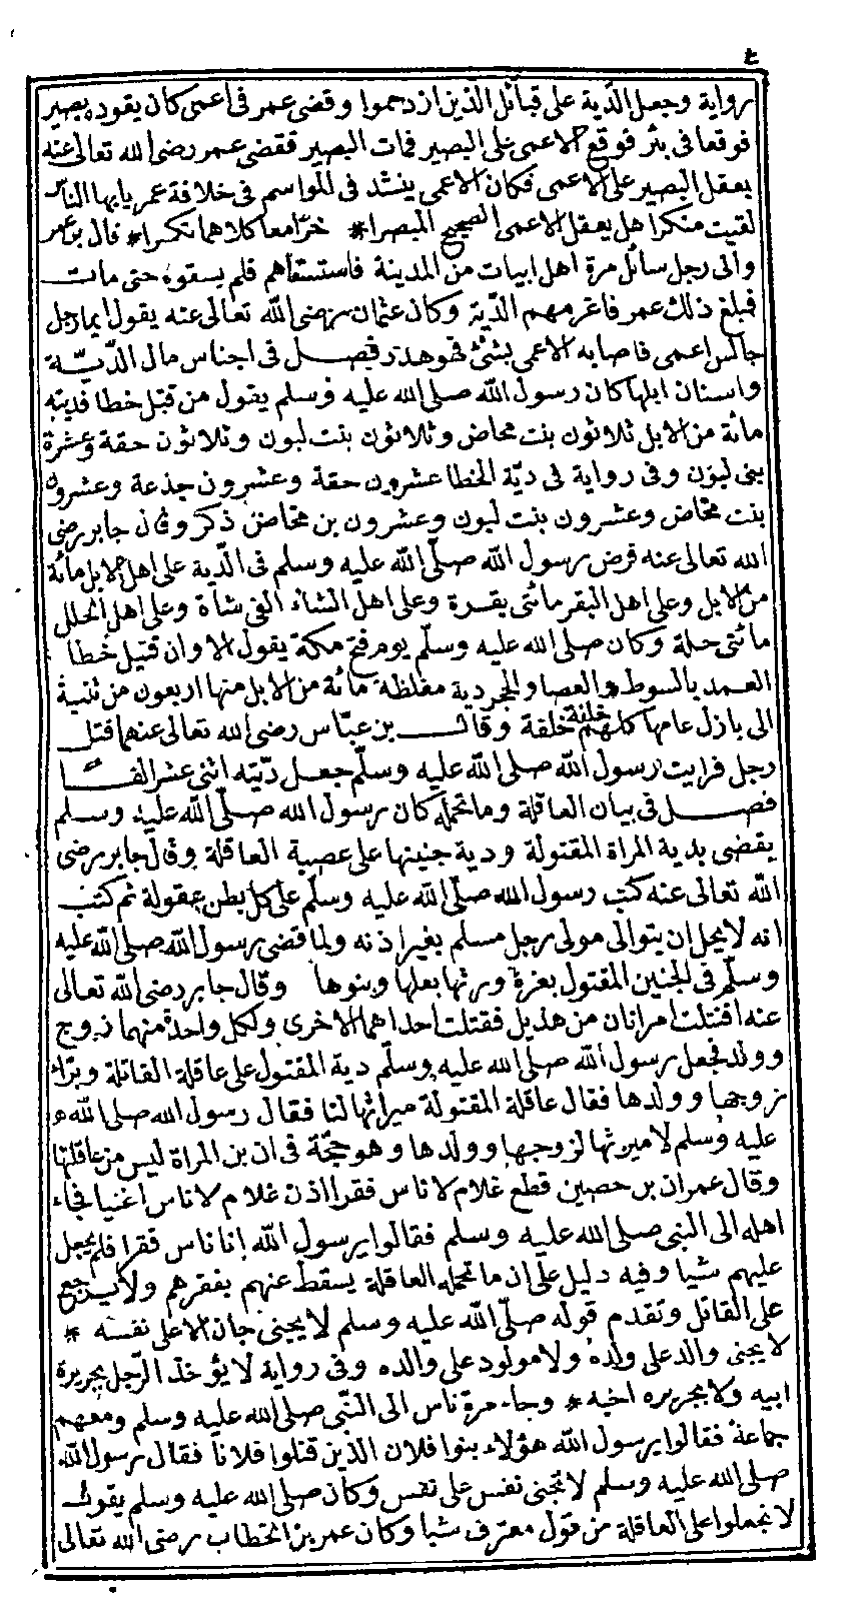 رواية وجعل الدية على قبائل الذين ازدحموا وقضى عمر فى اعمى كان يقوده بصير
فوقعا فى بئر فوقع الاعمى على البصير فمات البصير فقضى عمر رضى الله تعالى عنه
بعقل البصير على الاعمى فكان الاعمى ينشد فى المواسم فى خلافة عمر يايها الناس
لقيت منكرا هل يعقل الاعمى الصحيح المبصرا * خرا معا كلاهما تكسرا * قال بن عمر
واتى رجل سائل مرة اهل ابيات من المدينة فاستسقاهم فلم يسقوه حتى مات
فبلغ ذلك عمر فاغرمهم الدية وكان عثمان رضى الله تعالى عنه يقول ايما رجل
جالس اعمى فاصابه الاعمى بشئ فهو هدر فصل فى اجناس مال الدية
واسنان ابلها كان رسول الله صلى الله عليه وسلم يقول من قتل خطا فديته
مائة من الابل ثلاثون بنت مخاض وثلاثون بنت لبون وثلاثون حقة وعشرة
بنى لبون وفى رواية فى دية الخطا عشرون حقة وعشرون جذعة وعشرون
بنت مخاض وعشرون بنت لبون وعشرون بن مخاض ذكر وقال جابر رضى
الله تعالى عنه فرض رسول الله صلى الله عليه وسلم فى الدية على اهل الابل مائة
من الابل وعلى اهل البقر مائتى بقرة وعلى اهل الشاء الفى شاة وعلى اهل الحلل
مائتى حلة وكان صلى الله عليه وسلم يوم فتح مكة يقول الا وان قتيل خطا
العمد بالسوط والعصا والحجر دية مغلظة مائة من الابل منها اربعون من ثنية
الى بازل عامها كلهم خلفة خلفة وقال بن عباس رضى الله تعالى عنهما قتل
رجل فرايت رسول الله صلى الله عليه وسلم جعل ديته اثنى عشر الفا
فصل فى بيان العاقلة وما تحمله كان رسول الله صلى الله عليه وسلم
يقضى بدية المراة المقتولة ودية جنينها على عصبة العاقلة وقال جابر رضى
الله تعالى عنه كتب رسول الله صلى الله عليه وسلم على كل بطن عقولة ثم كتب
انه لا يحل ان يتوالى مولى رجل مسلم بغير اذنه ولما قضى رسول الله صلى الله عليه
وسلم فى الجنين المقتول بغرة ورثها بعلها وبنوها وقال جابر رضى الله تعالى
عنه اقتتلت امراتان من هذيل فقتلت احداهما الاخرى ولكل واحدة منهما زوج
وولد فجعل رسول الله صلى الله عليه وسلم دية المقتول على عاقلة القاتلة وبرا
زوجها وولدها فقال عاقلة المقتولة ميراثها لنا فقال رسول الله صلى الله
عليه وسلم لا ميرثها لزوجها وولدها وهو حجة فى ان بن المراة ليس من عاقلتها
وقال عمران بن حصين قطع غلام لاناس فقرا اذن غلام لاناس اغنيا فجاء
اهله الى النبى صلى الله عليه وسلم فقالوا يرسول الله انا ناس فقرا فلم يجعل
عليهم شيا وفيه دليل على ان ما تحمله العاقلة يسقط عنهم بفقرهم ولا يرجع
على القاتل وتقدم قوله صلى الله عليه وسلم لا يجنى جان الا على نفسه *
لا يجنى والد على ولده ولا مولود على والده وفى رواية لا يؤخذ الرجل بجريرة
ابيه ولا بجريره اخيه * وجاء مرة ناس الى النبى صلى الله عليه وسلم ومعهم
جماعة فقالوا يرسول الله هؤلاء بنوا فلان الذين قتلوا فلانا فقال رسول الله
صلى الله عليه وسلم لا تجنى نفس على نفس وكان صلى الله عليه وسلم يقول
لا تجعلوا على العاقلة من قول معترف شيا وكان عمر بن الخطاب رضى الله تعالى